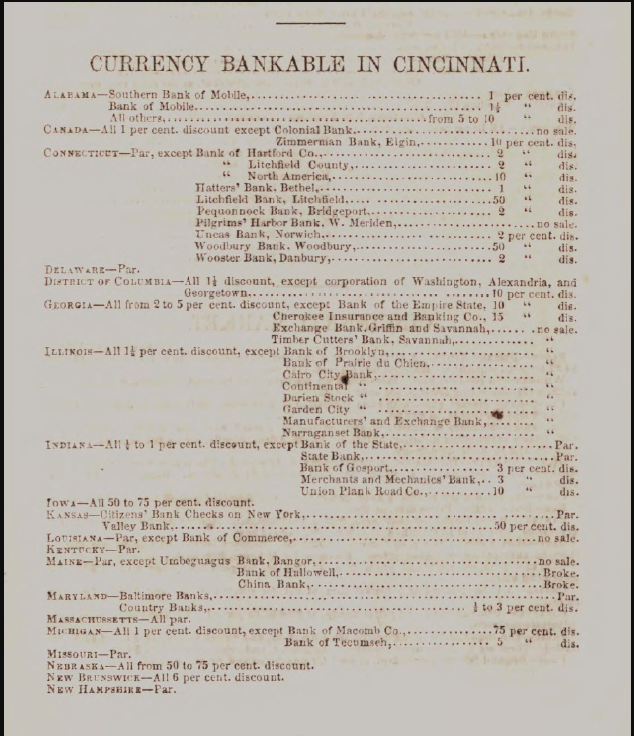 CURRENCY BANKABLE IN CINCINNATI.
ALABAMA—Southern Bank of Mobile,........ 1 per cent. dis.
Bank of Mobile........ 1½ “ dis.
All others,........from 5 to 10 “ dis.
CANADA—All 1 per cent. discount except Colonial Bank........no sale.
Zimmerman Bank, Elgin,........10 per cent. dis.
CONNECTICUT—Par, except Bank of Hartford Co.,........ 2 “ dis.
“ Litchfield County,........ 2 “ dis.
“ North America,........10 “ dis.
Hatters' Bank, Bethel,........ 1 “ dis.
Litchfield Bank, Litchfield,........50 “ dis.
Pequonnock Bank, Bridgeport,........ 2 “ dis.
Pilgrims' Harbor Bank, W. Meriden,........no sale.
Uncas Bank, Norwich,........ 2 per cent. dis.
Woodbury Bank, Woodbury,........50 “ dis.
Wooster Bank, Danbury,........ 2 “ dis.
DELAWARE—Par.
DISTRICT OF COLUMBIA—All 1½ discount, except corporation of Washington, Alexandria, and
Georgetown,........10 per cent. dis.
GEORGIA—All from 2 to 5 per cent. discount, except Bank of the Empire State, 10 “ dis.
Cherokee Insurance and Banking Co., 15 “ dis.
Exchange Bank, Griffin and Savannah,...... no sale.
Timber Cutters' Bank, Savannah,........ “
ILLINOIS—All 1½ per cent. discount, except Bank of Brooklyn,........ “
Bank of Prairie du Chien,........ “
Cairo City Bank,........ “
Continental “ ........ “
Darien Stock “ ........ “
Garden City “ ........ “
Manufacturers' and Exchange Bank,........ “
Narraganset Bank,........ “
INDIANA—All ½ to 1 per cent. discount, except Bank of the State,........Par.
State Bank,........Par.
Bank of Gosport,........ 3 per cent. dis.
Merchants and Mechanics' Bank,.. 3 “ dis.
Union Plank Road Co.,........10 “ dis.
IOWA—All 50 to 75 per cent. discount.
KANSAS—Citizens' Bank Checks on New York,........Par.
Valley Bank,........50 per cent. dis.
LOUISIANA—Par, except Bank of Commerce,........no sale.
KENTUCKY—Par.
MAINE—Par, except Umbeguagus Bank, Bangor,........no sale.
Bank of Hallowell,........Broke.
China Bank,........Broke.
MARYLAND—Baltimore Banks,........Par.
Country Banks,........ ½ to 3 per cent. dis.
MASSACHUSSETTS—All par.
MICHIGAN—All 1 per cent. discount, except Bank of Macomb Co.,........75 per cent. dis.
Bank of Tecumseh,........ 5 “ dis.
MISSOURI—Par.
NEBRASKA—All from 50 to 75 per cent. discount.
NEW BRUNSWICK—All 6 per cent. discount.
NEW HAMPSHIRE—Par.